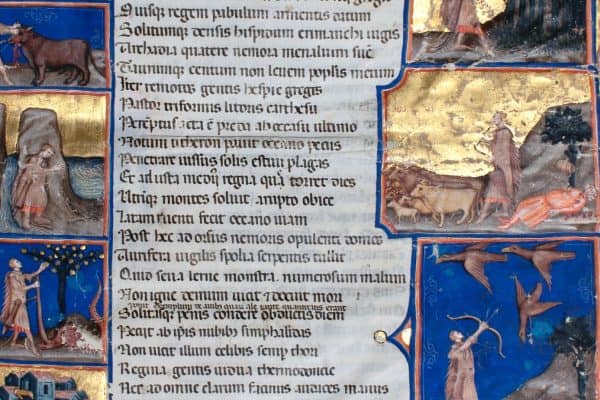 Quisq regem pabulum armentis datum
Solitumq densis hispidum erimanthi iugis
Archadia quatere nemora menalium suē
Taurumq centum non leuem poplis metum
Iter remotos gentis hespie gregis
Pastor triformis litoris carthesii
Peremptus acta ē preda ab occasu ultimo
Notum citheron pauit oceano pecus
Penetrare iussus solis estiui plagas
Et adusta medii regna qua torret dies
Utriq montes soluit rupto obice
Latam ruenti fecit oceano uiam
Post hec adorsus nemoris opulenti domos
Aurifera uigilis spolia serpentis tulit
Quid seua lerne monstra numerosum malum
Non igne demum uicit et docuit mori
Solitasq penis condere obductis diem
Petijt ab ipis nubibus stimphalidas
Non uicit illum celibis semp thori
Regina gentis uidua thermodoncie
Nec ad omne clarum facinus audaces manus